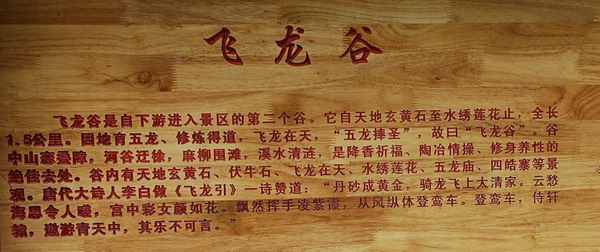 飞龙谷
飞龙谷是自下游进入景区的第二个谷。它自天地玄黄石至水绣莲花止，全长
1.5公里。因地育五龙、修炼得道，飞龙在天，“五龙捧圣”，故曰“飞龙谷”。谷
中山峦叠障，河谷迂徐，麻柳围滩，溪水清涟，是降香祈福、陶冶情操、修身养性的
绝佳去处。谷内有天地玄黄石、伏牛石、飞龙在天、水绣莲花、五龙庙、四皓寨等景
观。唐代大诗人李白做《飞龙引》一诗赞道，“丹砂成黄金，骑龙飞上太清家。云愁
海思令人嗟，宫中彩女颜如花。飘然挥手凌紫霞，从风纵体登鸾车。登鸾车，侍轩
辕，遨游青天中，其乐不可言。”